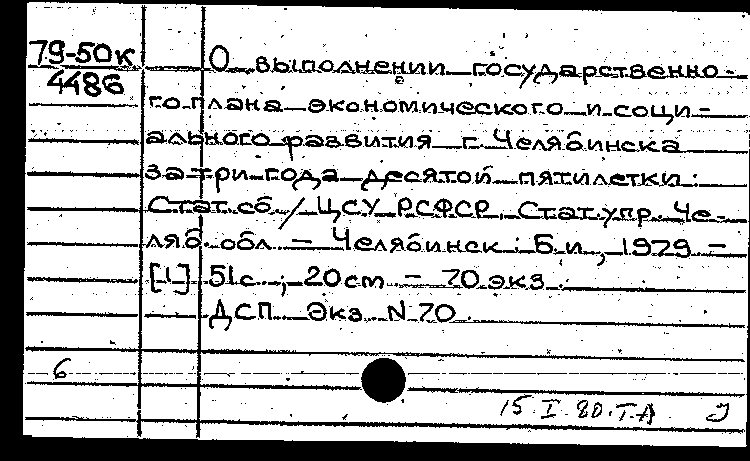 79-50к
4486
О выполнении государственно-
го плана экономического и соци-
ального развития г. Челябинска
за три года десятой пятилетки :
Стат. сб. / ЦСУ РСФСР, Стат. упр. Че-
ляб. обл. – Челябинск : Б.и., 1979 –
[1] 51с. ; 20 cm – 70 экз.
ДСП. Экз. N 70.
6
15. I. 80. Т.А